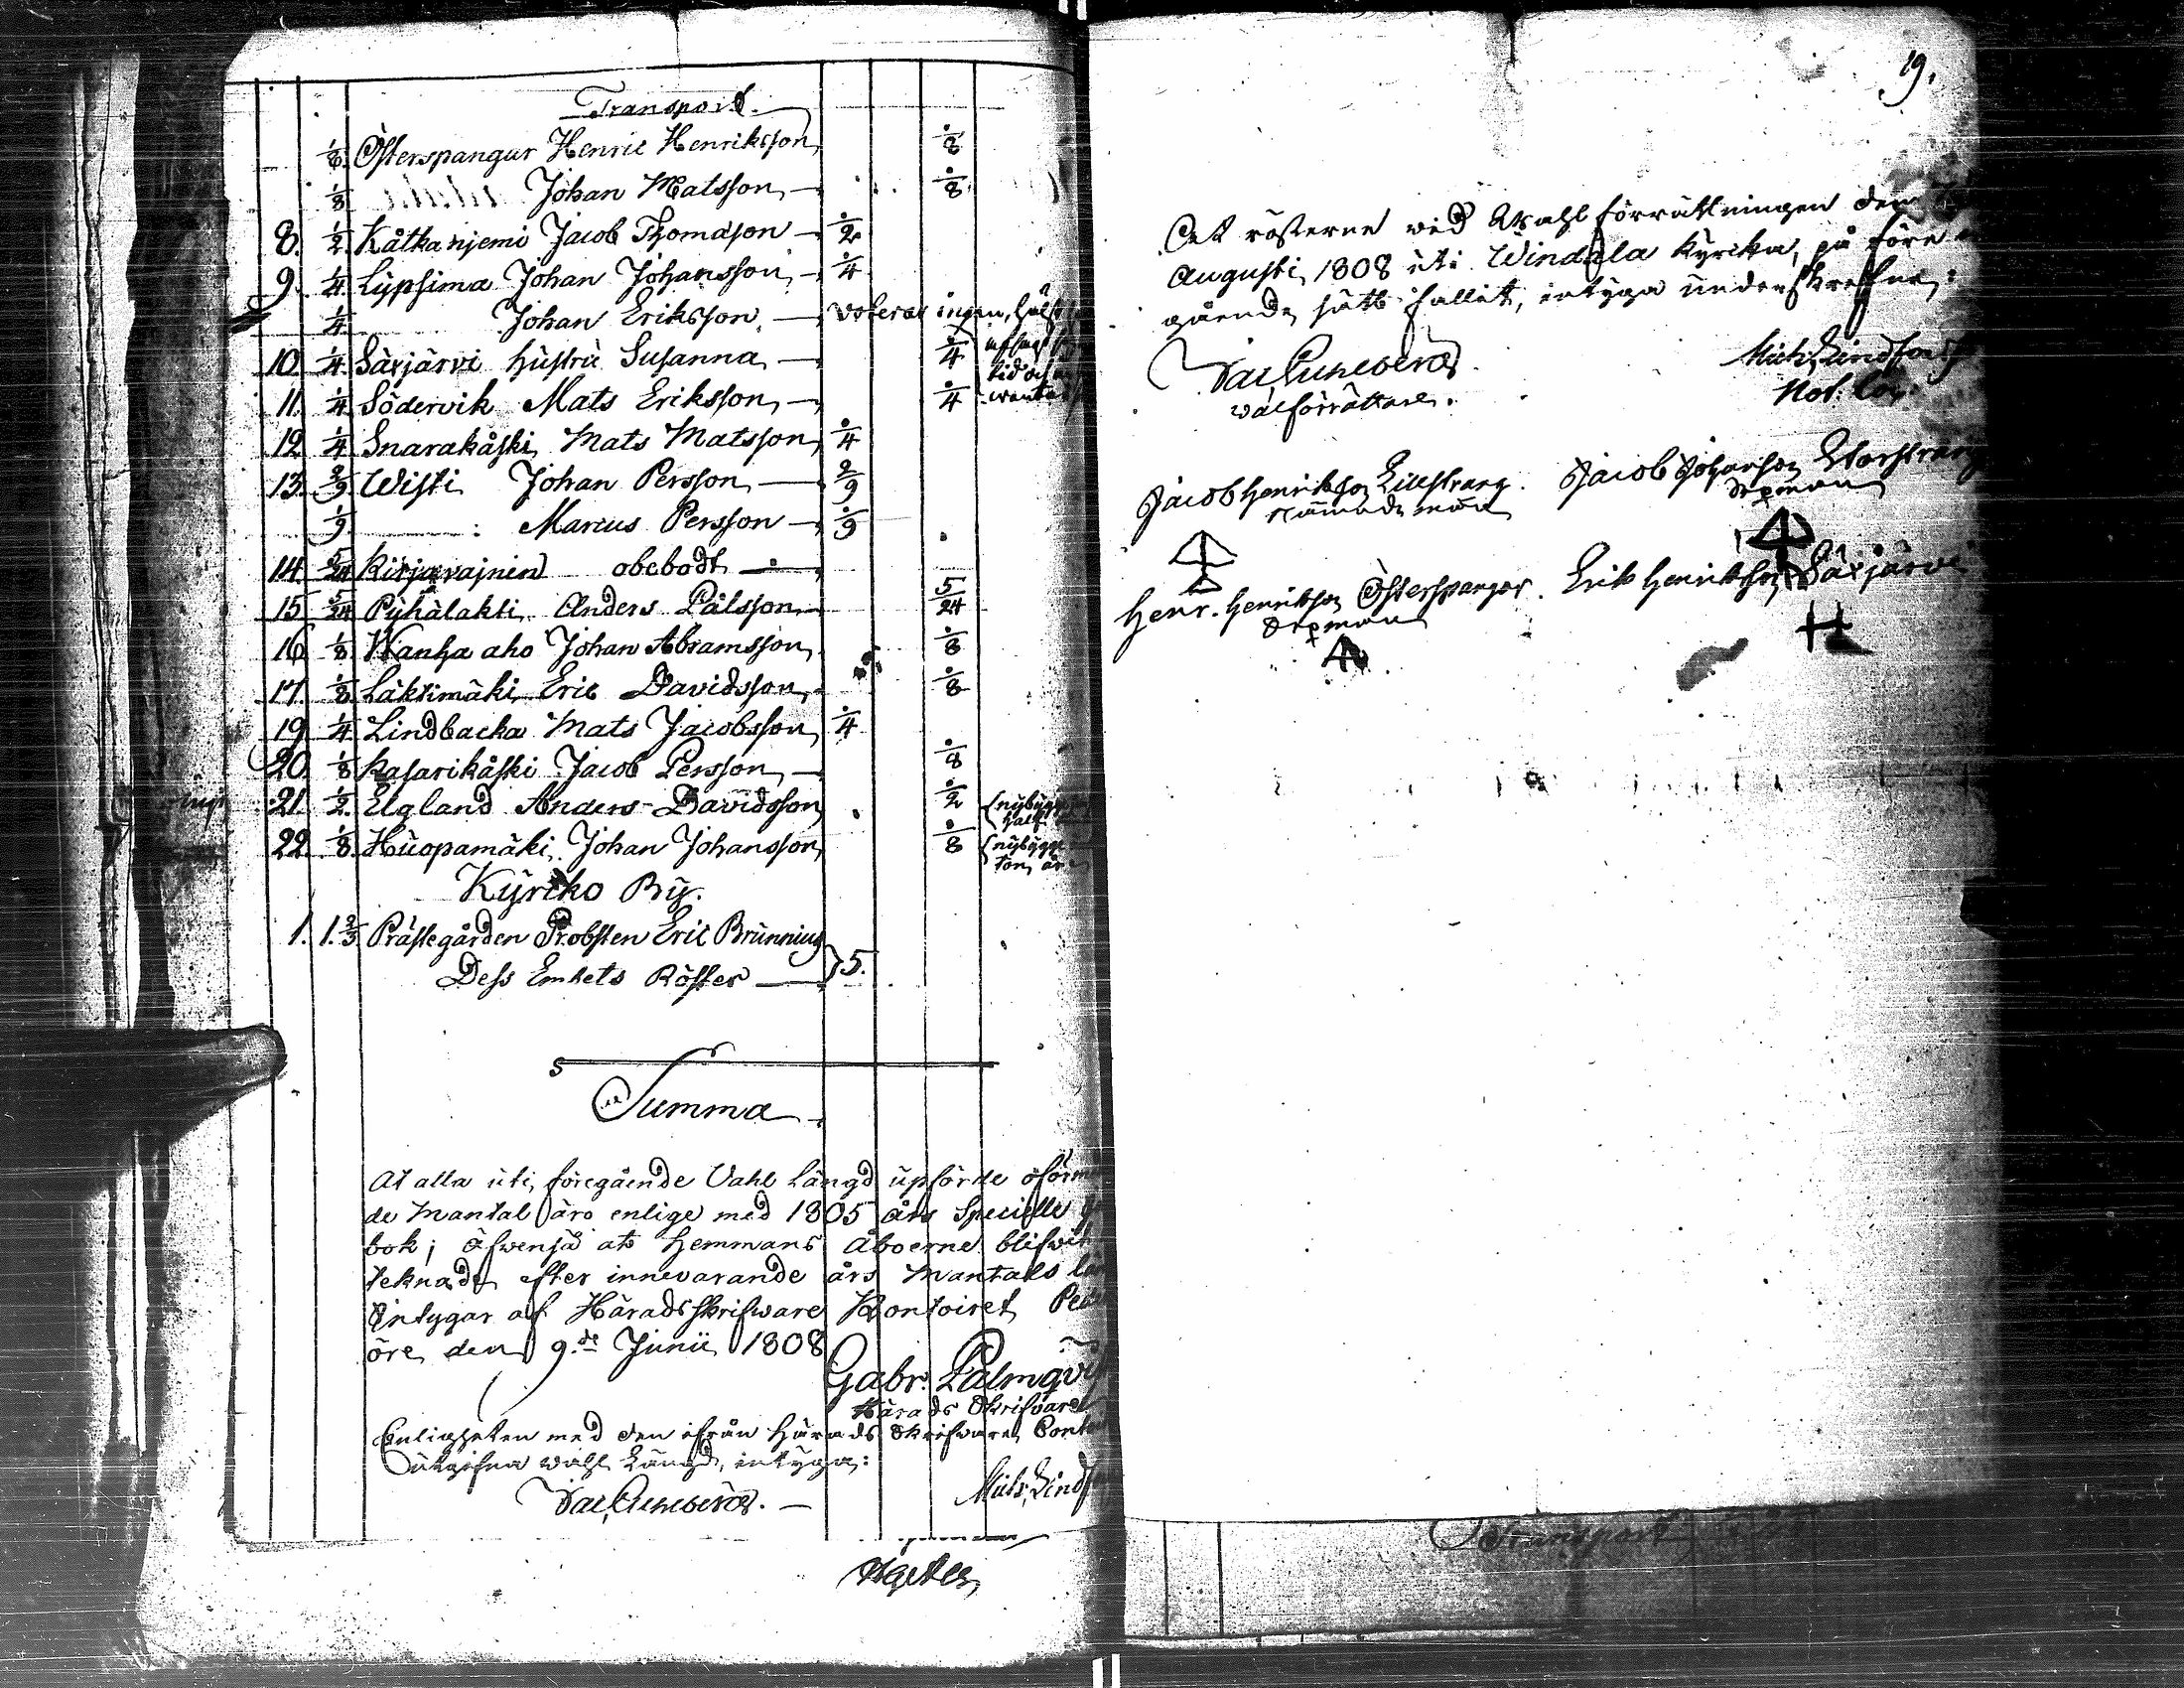 Transport.
1/8. Österspangar Henric Henriksson 1/8
1/8 Johan Matsson 1/8
8. 1/2. Kåtkanjemi Jacob Thomasson 1/2
9. 1/4. Lypsima Johan Johansson 1/4
1/4 Johan Eriksson voterar ingen,
10. 1/4. Säxjärvi hustru Susanna 1/4
11. 1/4 Södervik Mats Eriksson 1/4
12 1/4 Snarakåski Mats Matsson 1/4
13. 2/9 Wisti Johan Persson 2/9
1/9. Marcus Persson 1/9
14. 5/24 obebodt
15 5/24 Pyhälakti Anders Pålsson 5/24
16 1/8 Wanha aho Johan Abramsson 1/8
17. 1/8 Läktimäki Eric Davidsson 1/8
19 1/4 Lindbacka Mats Jacobsson 1/4
20. 1/8 Kasarikåski Jacob Persson 1/8
21. 1/2. Elgland Anders Davidsson 1/2
22. 1/8. Huopamäki Johan Johansson 1/8
Kyrko By.
1. 1.2/3 Prästegården Probsten Eric Brunnius
Dess Embets Röster 5.
Summa
At alla uti föregående Vahl Längd upförde
de Mantal äro enlige med 1805 års Specielle
bok; äfwenså at Hemmans Åboerne blifwit
teknade efter innevarande års Mantals
Intygar af Häradsskrifware Kontoiret
öre den 9.de Junii 1808
Gabr. Palmqvist
Härads Skrifvare
Enligheten med den ifrån Härads Skrifware
utgifna wahl Längd, intyga:
19.
At rösterne wid Wahlförrättningen den
Augusti 1808 uti Windala Kyrcka, på före
gående sätt fallit, intyga underskrefne:
walförrättare.
Not: Cor.
Jacob Henrikson Lillstrang. Jacob Johanson Storstrang
Nämndeman
Henr. Henrikson Österspangar. Erik Henrikson Säxjärvi